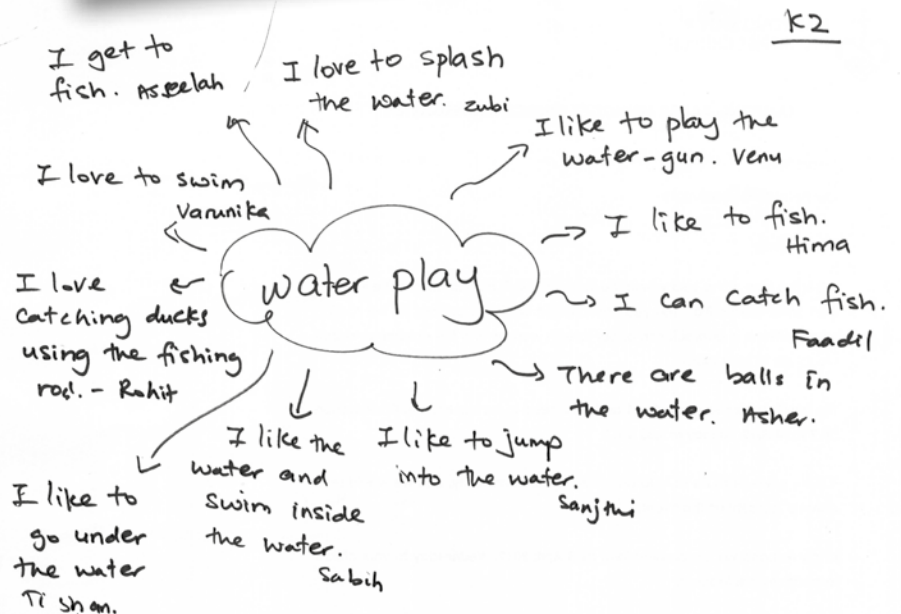 K2
I get to
fish. Aseelah
I love to splash
the water. Zubi
I like to play the
water-gun. Venu
I love to swim
Varunika
I like to fish.
Hima
water play
I love
catching ducks
using the fishing
rod. - Rohit
I can catch fish.
Faadil
There are balls in
the water. Asher.
I like the
water and
swim inside
the water.
Sabih
I like to jump
into the water.
Sanjthi
I like to
go under
the water
Tishan.